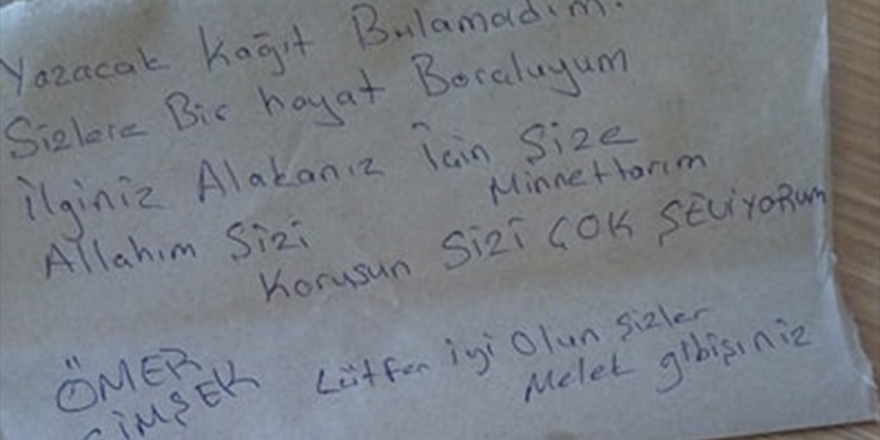 Yazacak Kağıt Bulamadım.
Sizlere Bir hayat Borcluyum
İlginiz Alakanız İçin Size
Minnettarım
Allahım Sizi
Korusun SİZİ ÇOK ŞEViYORUM
ÖMER Lütfen iyi Olun Şizler
ŞİMŞEK Melek gibişiniz